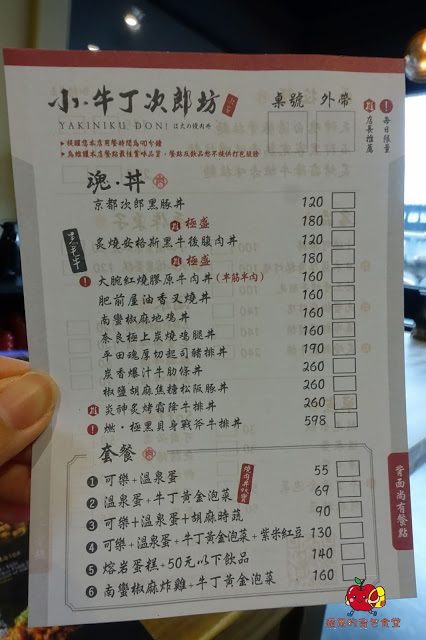 小·牛丁次郎坊
桌號 外帶
店長推薦
！每日限量
YAKINIKU DON!
➤ 提醒您本店用餐時間為90分鐘
➤ 為維護本店餐點最佳賞味品質，餐點及飲品恕不提供打包服務
魂·丼
京都次郎黑豚丼 120
極盛 180
炙燒安格斯黑牛後腹肉丼 120
極盛 180
！大腕紅燒膠原牛肉丼(半筋半肉) 160
肥前屋油香叉燒丼 160
南蠻椒麻地鸡丼 160
奈良極上炭燒鸡腿丼 160
平田魂厚切起司豬排丼 190
炭香爆汁牛肋條丼 260
椒鹽胡麻焦糖松阪豚丼 260
炎神炙烤霜降牛排丼 260
！燃·極黑貝身戰斧牛排丼 598
套餐
燒肉丼以外
1 可樂+溫泉蛋 55
2 溫泉蛋+牛丁黃金泡菜 69
3 可樂+溫泉蛋+胡麻時蔬 90
4 可樂+溫泉蛋+牛丁黃金泡菜+紫米紅豆 130
5 熔岩蛋糕+50元以下飲品 140
6 南蠻椒麻炸雞+牛丁黃金泡菜 160
背面尚有餐點